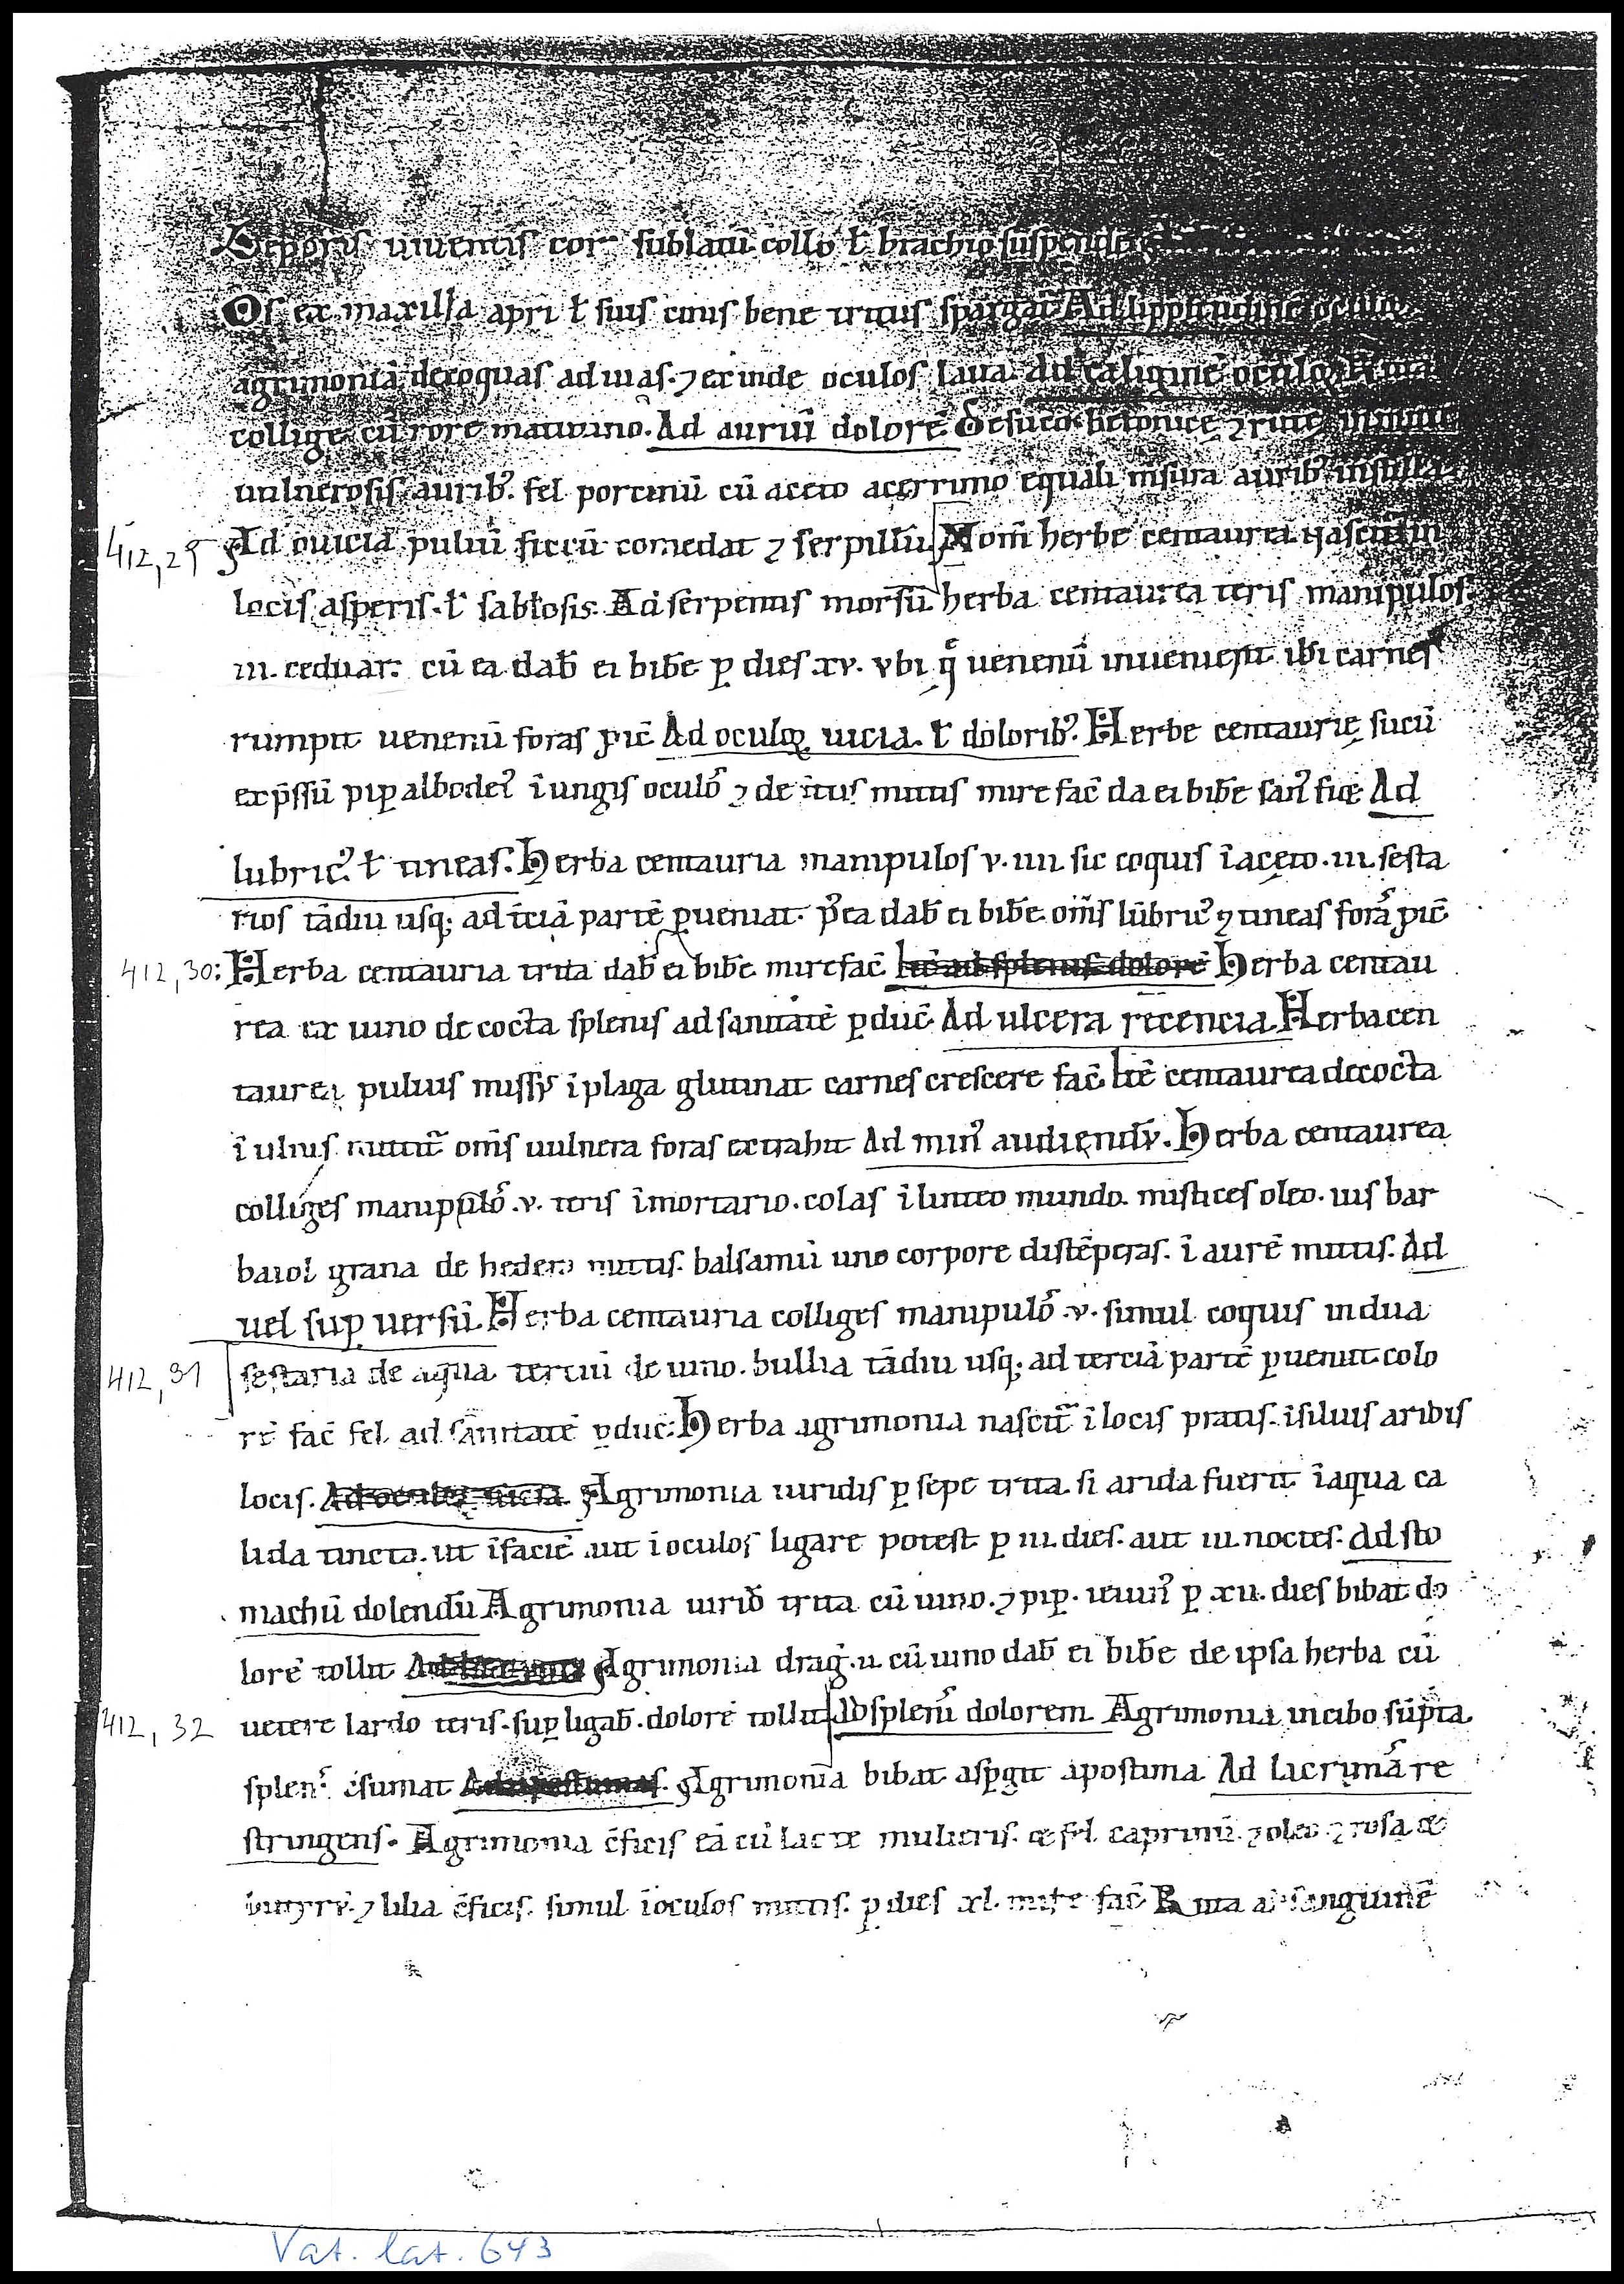 Leporis uiuentis cor sublatū collo ł brachio suspende
Os ex maxilla apri ł suis cinis bene tritus spargat̄ Ad lippitudinē oculo
agrimoniā decoquas ad uias. ⁊ exinde oculos laua. Ad caliginē oculoꝝ Ruta
collige cū rore matutino. Ad auriū dolorē De suco betonice ⁊ rute
uulnerosis aurib᾽. fel porcinū cū aceto acerrimo equali msura aurib᾽ instilla
412,29 Ad puluū siccū comedat ⁊ serpillū Nom̄ herbe centaurea nascit̄ in
locis asperis. ł sablosis. Ad serpentis morsū herba centaurea teris manipulos
iii. ceduar: cū ea dab̄ ei bibe ꝑ dies xv. vbi q̄ uenenū inuenierit ibi carnes
rumpit uenenū foras ꝓic̄ Ad oculoꝝ uicia. ł dolorib᾽. Herbe centaurię sucū
exp̄ssū pip̱ albo de᾽ īungis oculo᾽ ⁊ de itus mittis mire fac̄ da ei bibe san᾽ fiæ Ad
lubric᾽. ł tineas. Herba centauria manipulos v. iiii sic coquis ī aceto. iii. sesta
rios tādiu usq; ad t̄ciā partē ꝑueniat. p᾽ea dab̄ ei bibe. om̄s lūbric᾽ ⁊ tineas foras ꝓic̄
412,30: Herba centauria trita dab̄ ei bibe mire fac̄ Itē ad splenis dolorē Herba centau
rea ex uino decocta splenis ad sanitatē ꝑduc̄ Ad ulcera recencia. Herba cen
taurea puluis missꝰ ī plaga glutinat carnes crescere fac̄ Itē centaurea decocta
ī om̄s uulnera foras extrahit Ad min᾽ audiendū. Herba centaurea
colliges manipulo᾽. v. teris ī mortario. colas ī linteo mundo. mistices oleo. uis bar
baiol grana de hedera mittis. balsamū uno corpore distēperas. ī aurē mittis. Ad
uel sup̱ uersū Herba centauria colliges manipulo᾽ v. simul coquis in dua
412,31 sestaria de aqua terciū de uino. bullia tādiu usq; ad terciā partē ꝑuenit colo
rē fac̄ fel ad sanitatē ꝑduc̄: Herba agrimonia nascit̄ ī locis pratis. ī siluis aridis
locis. Ad oculoꝝ uicia Agrimonia uiridis ꝑ sepe trita si arida fuerit ī aqua ca
lida tincta. ut ī facie aut ī oculos ligare potest ꝑ iii. dies. aut iii. noctes. Ad sto
machū dolendū Agrimonia uirid̄ trita cū uino. ⁊ pip̱. ieiun᾽ ꝑ xii. dies bibat do
lorē tollit Agrimonia drag̃. ii. cū uino dab̄ ei bibe de ipsa herba cū
412,32 uetere lardo teris. sup̱ ligab̄. dolorē tollit Ad spleni᾽ dolorem Agrimonia in cibo sūpta
splen᾽ c̄sumat Ad apostumas. Agrimonia bibat aspgit apostima Ad lacrima re
stringens. Agrimonia c̄ficis eā cū lacte mulieris. æ fel caprinū. ⁊ oleo ⁊ rosa æ
butyrū. ⁊ lilia c̄ficis. simul ī oculos mittis. ꝑ dies xl. mire fac̄ Ruta ad sanguinē
Vat. lat. 643